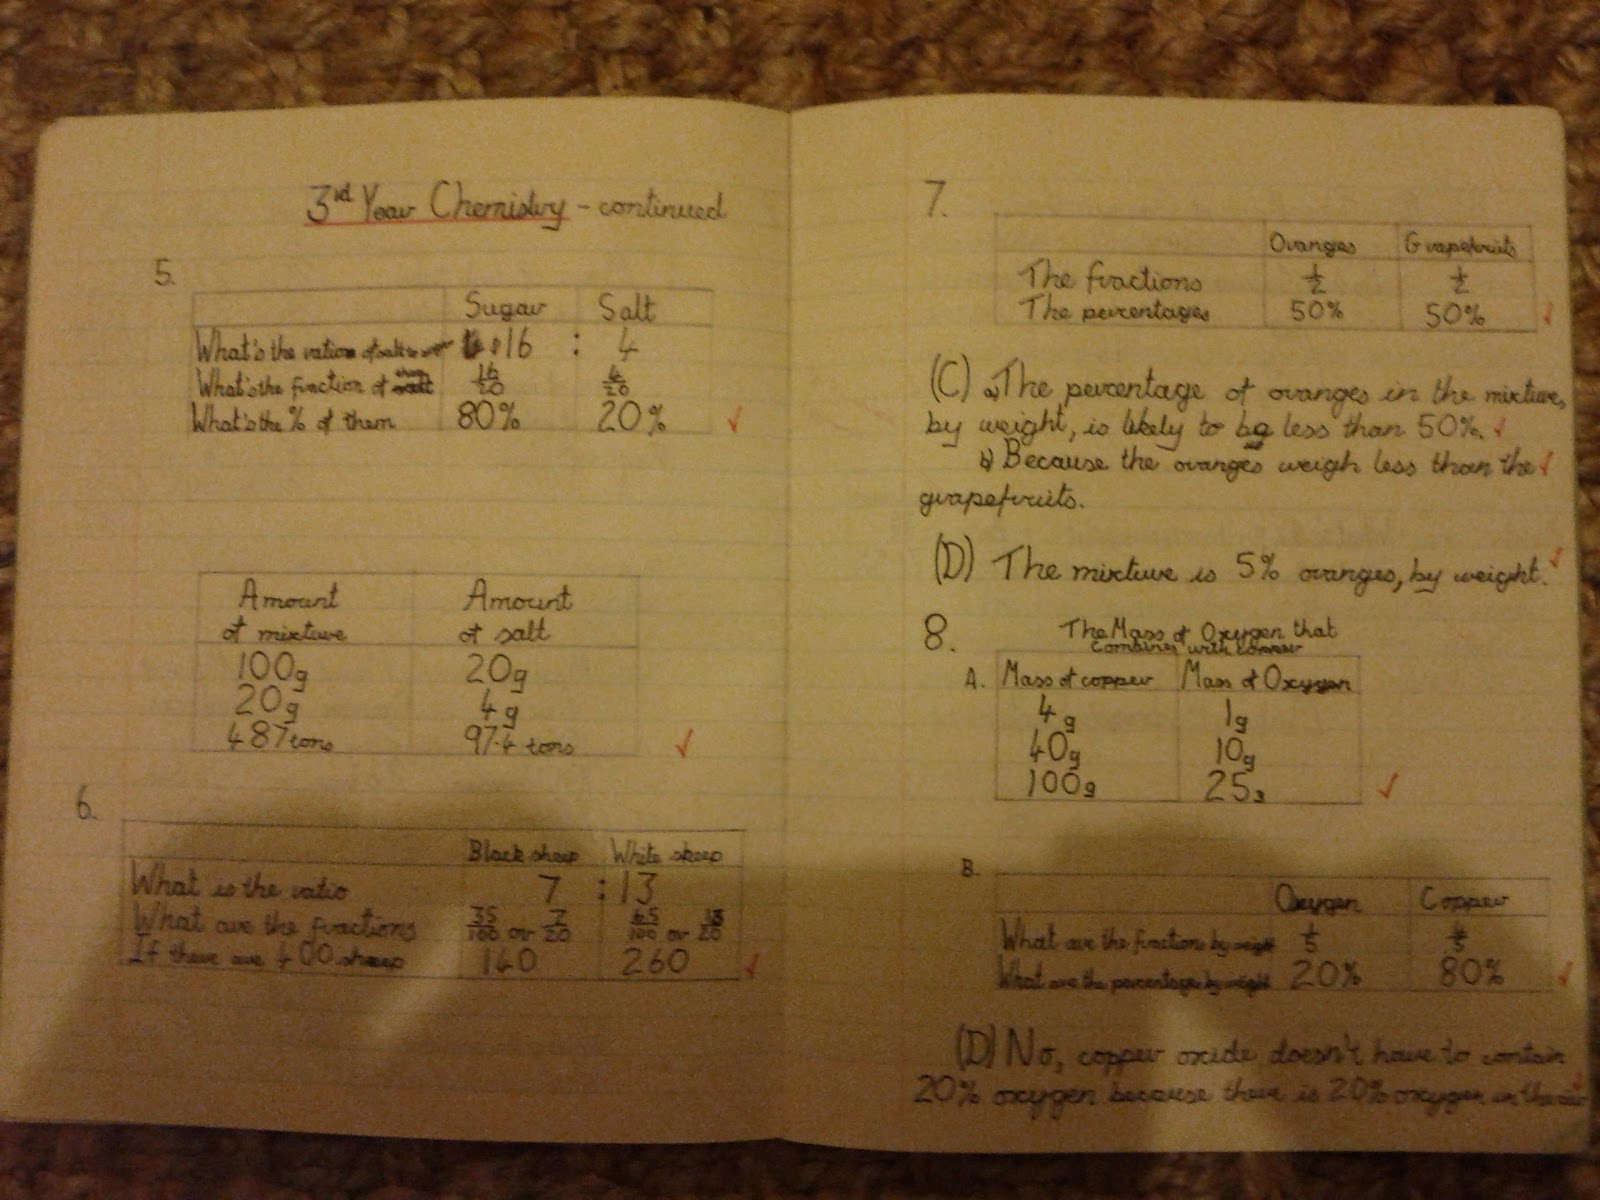 3rd Year Chemistry - continued
5.
Sugar Salt
What's the ration of salt to sugar 16 : 4
What's the fraction of 16/20 4/20
What's the % of them 80% 20%
Amount Amount
of mixture of salt
100g 20g
20g 4g
487 tons 97.4 tons
6.
Black sheep White sheep
What is the ratio 7 : 13
What are the fractions 35/100 or 7/20 65/100 or 13/20
If there are 400 sheep 140 260
7.
Oranges Grapefruits
The fractions 1/2 1/2
The percentages 50% 50%
(C) a) The percentage of oranges in the mixture,
by weight, is likely to be less than 50%.
b) Because the oranges weigh less than the
grapefruits.
(D) The mixture is 5% oranges, by weight.
8. The Mass of Oxygen that
combines with copper
A. Mass of copper Mass of Oxygen
4g 1g
40g 10g
100g 25g
B.
Oxygen Copper
What are the fractions by weight 1/5 4/5
What are the percentages by weight 20% 80%
(D) No, copper oxide doesn't have to contain
20% oxygen because there is 20% oxygen in the air